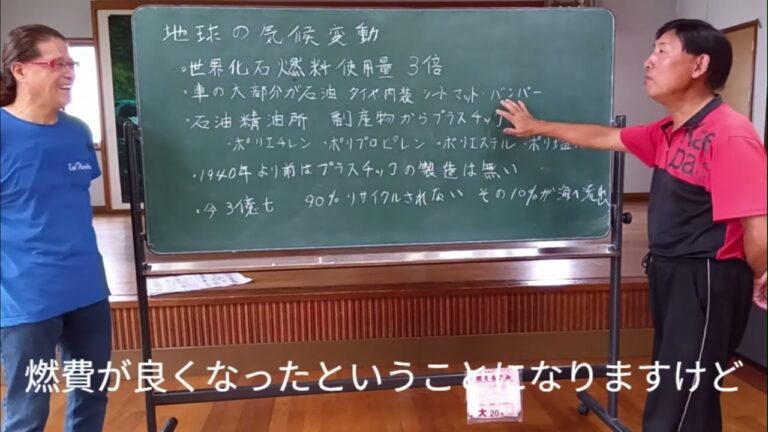 地球の気候変動
・世界化石燃料使用量 3倍
・車の大部分が石油 タイヤ内装 シートマット・バンパー
・石油精油所 副産物からプラスチック
・ポリエチレン ・ポリプロピレン ・ポリエステル ・ポリ塩
・1940年より前はプラスチックの製造は無い
・今3億七 90%リサイクルされない その10%が海へ流出
燃えるごみ
大 20
燃費が良くなったということになりますけど